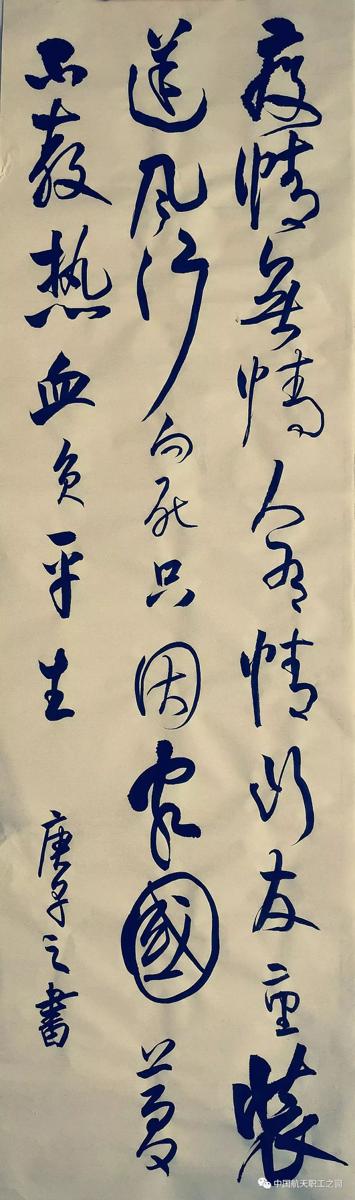 疫情無情人有情友重装
逆风行向死只因家國夢
不教热血负平生
庚子之書
中国航天职工之家